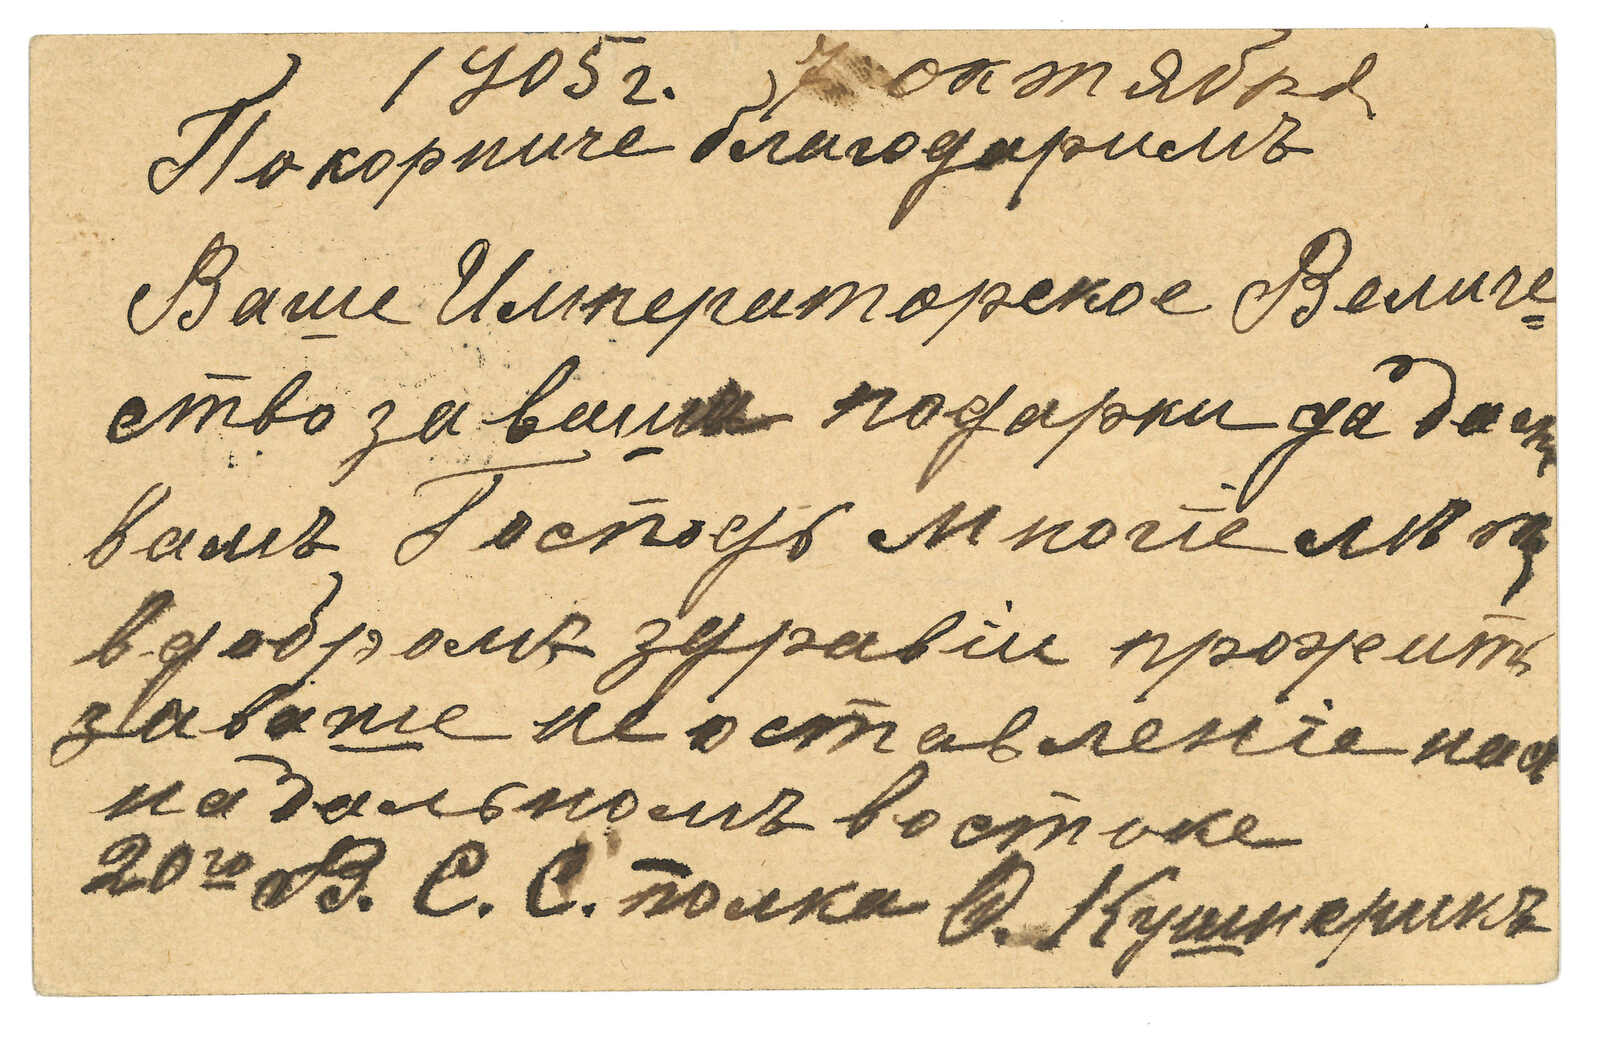 1905 г. 7 октября
Покорниче благодаримъ
Ваше Императорское Величе=
ство за ваши подарки да дастъ
вамъ Господь многіе лѣтъ
в добромъ здравіи прожить
за ваше не оставленіе нас
на дальномъ востоке
20го В. С. С. полка Ѳ. Кушнерикъ